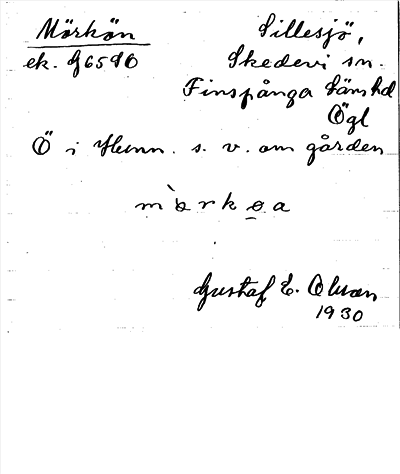 Mörkön
ek. 
Sillesjö,
Skedevi sn.
Finspånga läns hd
Ögl
Ö i Hunn. s. v. om gården
Gustaf E. Olsson
1930